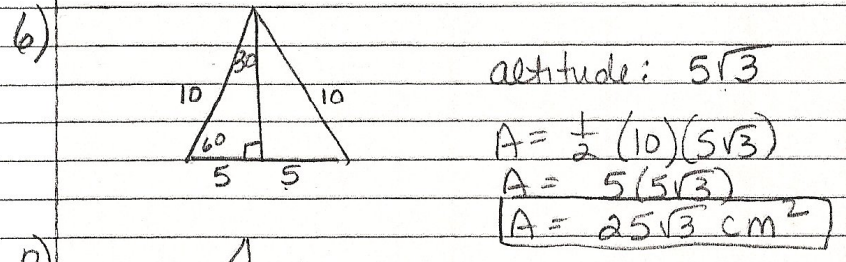 6)
30
10 10
60
5 5
altitude: 5√3
A = 1/2 (10)(5√3)
A = 5(5√3)
A = 25√3 cm²